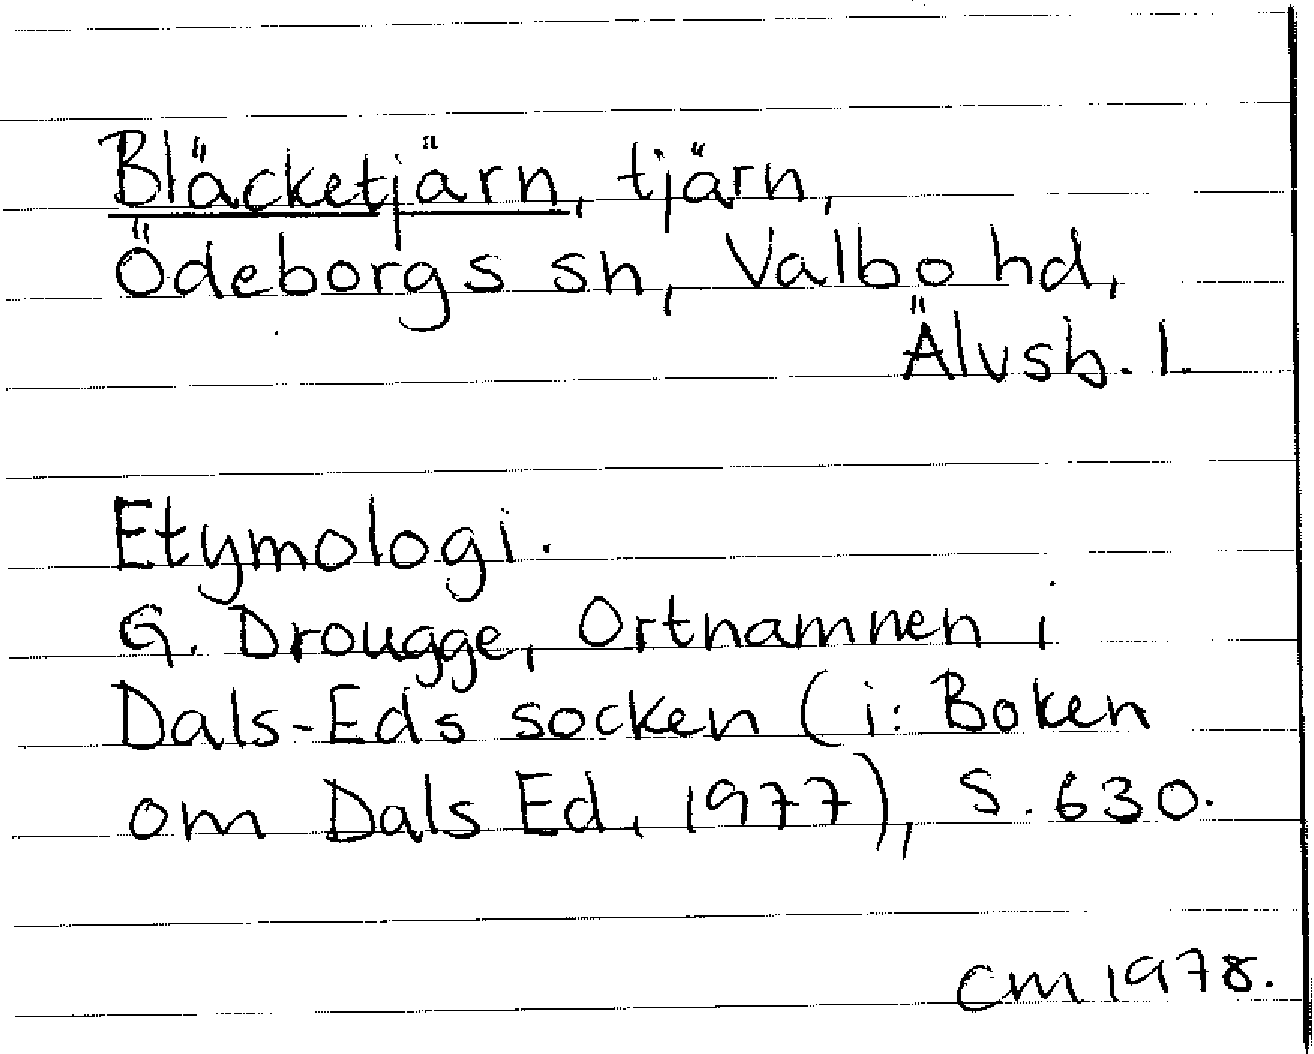 Bläcketjärn, tjärn,
Ödeborgs sn, Valbo hd,
Älvsb. l.
Etymologi.
G. Drougge, Ortnamnen i
Dals-Eds socken (i: Boken
om Dals Ed, 1977), s. 630.
CM 1978.